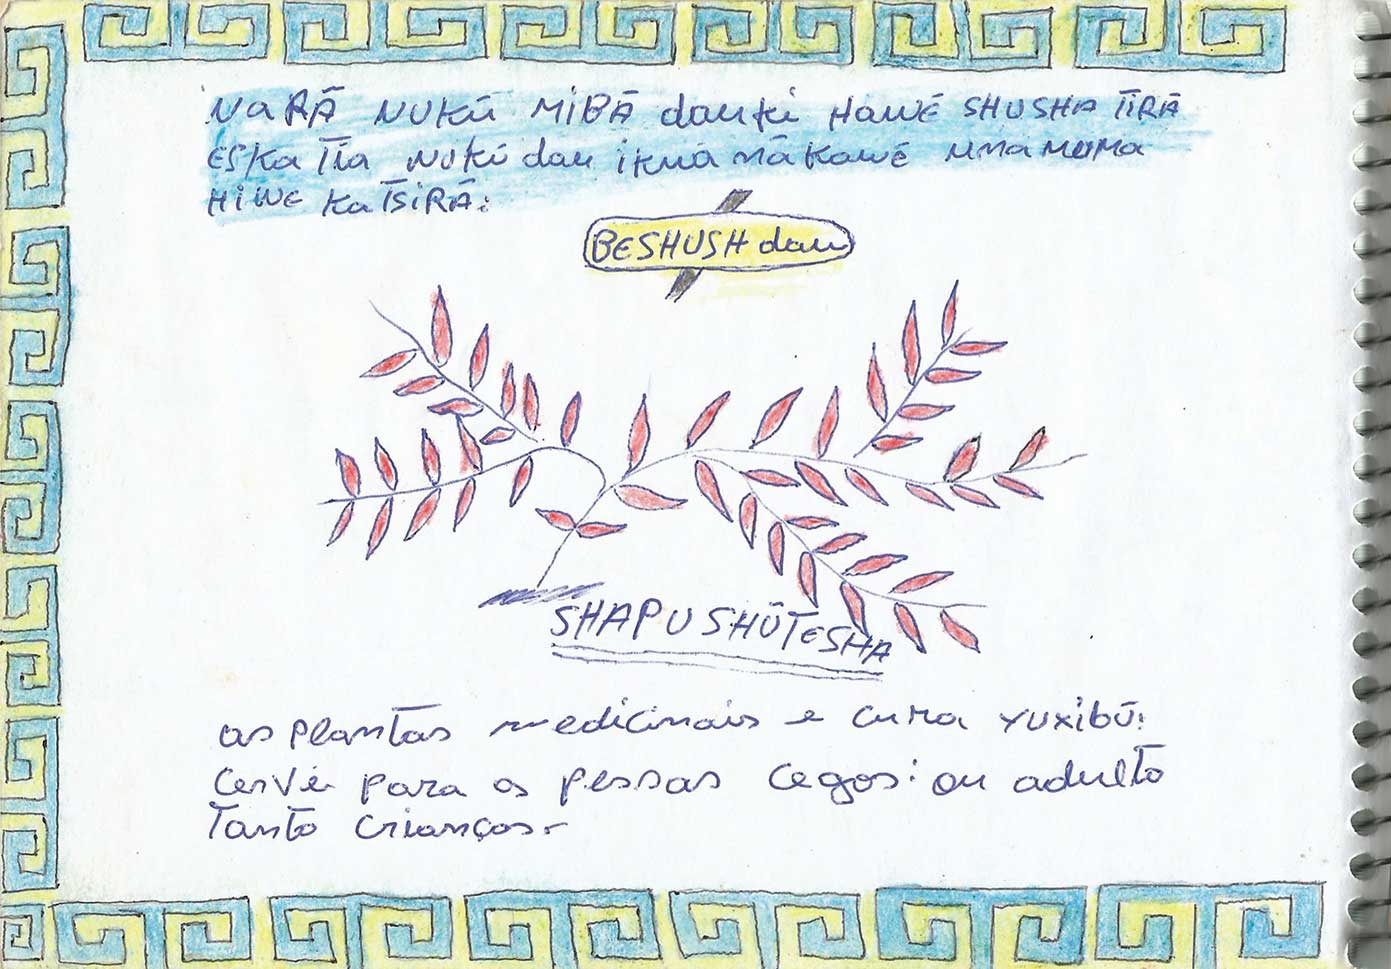 NaRÃ NUKŨ MIBÃ dauki Hawẽ SHUSHA TĨRÃ
ESKa Tĩa NUKũ dau ikuã nãkawẽ unanuma
HIWE KaTSIRÃ:
BESHUSH dau
SHAPU SHŨTESHA
as plantas medicinais e cura YUXIBŨ:
Cervi para as pessas cegos: ou adulto
Tanto crianços-